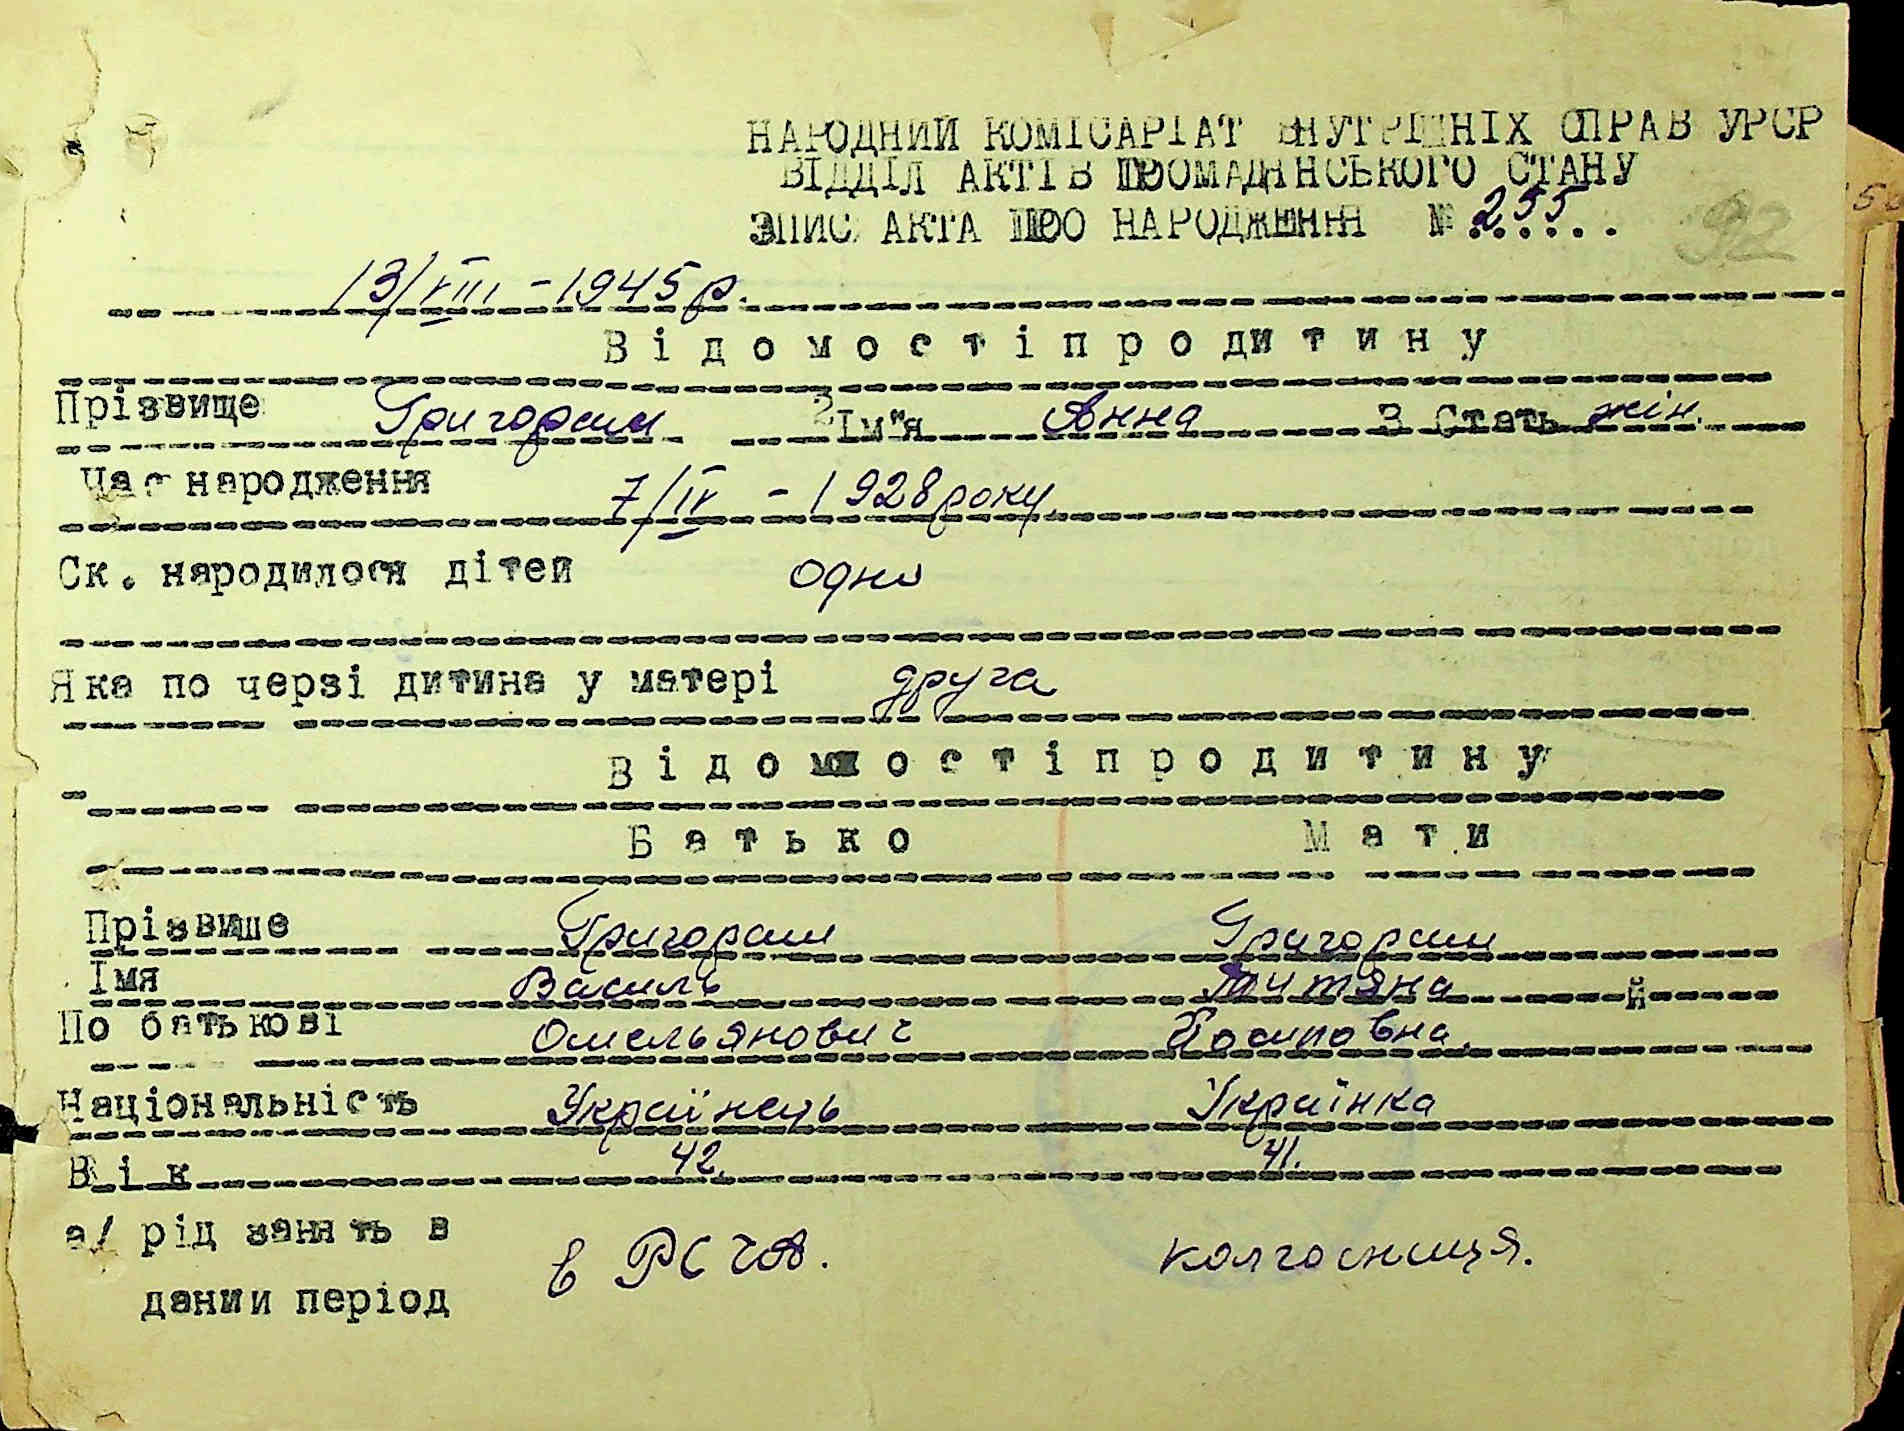 НАРОДНИЙ КОМІСАРІАТ ВНУТРІШНІХ СПРАВ УРСР
ВІДДІЛ АКТІВ ГРОМАДЯНСЬКОГО СТАНУ
ЗАПИС АКТА ПРО НАРОДЖЕННЯ № 255 92
13/VIII - 1945 р.
Відомості про дитину
Прізвище Григораш 2 Ім"я Анна 3 Стать жін.
Час народження 7/IV - 1928 року
Ск. народилося дітей одно
Яка по черзі дитина у матері друга
Відомості про дитину
Батько Мати
Прізвище Григораш Григораш
Імя Василь Титяна й
По батькові Омельянович Йосиповна.
Національність Українець Українка
Вік 42. 41.
а/ рід занять в
даний період в РСЧА. колгосниця.